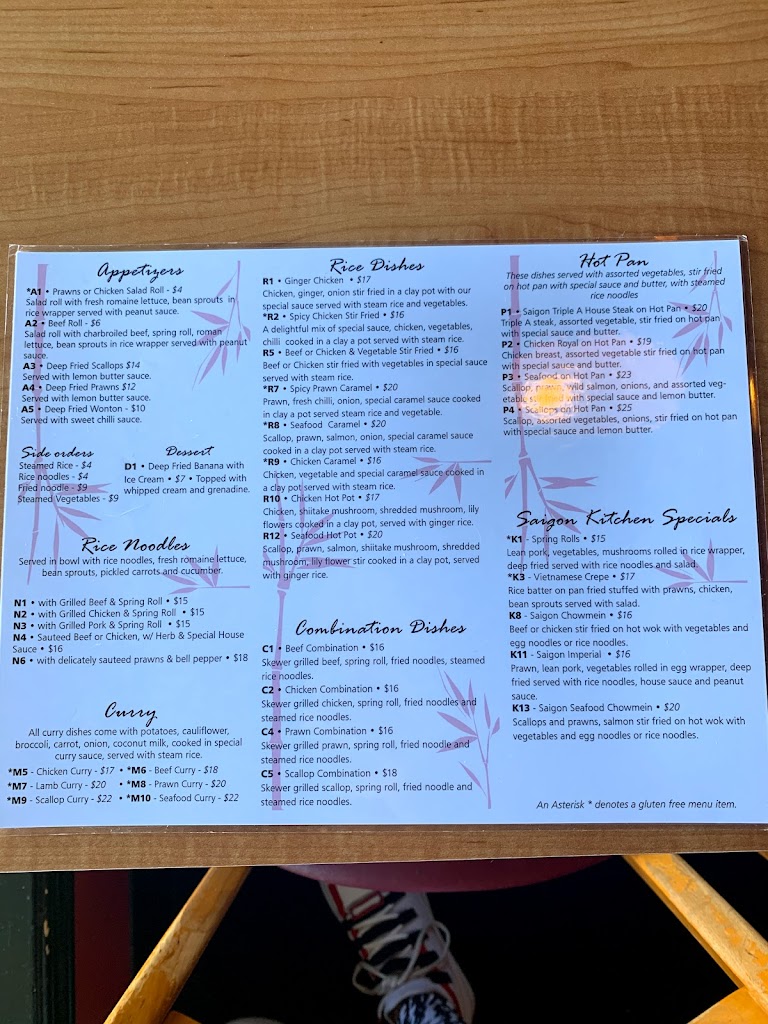 Appetizers
*A1 • Prawns or Chicken Salad Roll - $4
Salad roll with fresh romaine lettuce, bean sprouts in
rice wrapper served with peanut sauce.
A2 • Beef Roll - $6
Salad roll with charbroiled beef, spring roll, roman
lettuce, bean sprouts in rice wrapper served with peanut
sauce.
A3 • Deep Fried Scallops $14
Served with lemon butter sauce.
A4 • Deep Fried Prawns $12
Served with lemon butter sauce.
A5 • Deep Fried Wonton - $10
Served with sweet chilli sauce.
Side orders
Steamed Rice - $4
Rice noodles - $4
Fried noodle - $9
Steamed Vegetables - $9
Dessert
D1 • Deep Fried Banana with
Ice Cream • $7 • Topped with
whipped cream and grenadine.
Rice Noodles
Served in bowl with rice noodles, fresh romaine lettuce,
bean sprouts, pickled carrots and cucumber.
N1 • with Grilled Beef & Spring Roll • $15
N2 • with Grilled Chicken & Spring Roll • $15
N3 • with Grilled Pork & Spring Roll • $15
N4 • Sauteed Beef or Chicken, w/ Herb & Special House
Sauce • $16
N6 • with delicately sauteed prawns & bell pepper • $18
Curry
All curry dishes come with potatoes, cauliflower,
broccoli, carrot, onion, coconut milk, cooked in special
curry sauce, served with steam rice.
*M5 - Chicken Curry - $17 • *M6 - Beef Curry - $18
*M7 - Lamb Curry - $20 • *M8 - Prawn Curry - $20
*M9 - Scallop Curry - $22 • *M10 - Seafood Curry - $22
Rice Dishes
R1 • Ginger Chicken • $17
Chicken, ginger, onion stir fried in a clay pot with our
special sauce served with steam rice and vegetables.
*R2 • Spicy Chicken Stir Fried • $16
A delightful mix of special sauce, chicken, vegetables,
chilli cooked in a clay pot served with steam rice.
R5 • Beef or Chicken & Vegetable Stir Fried • $16
Beef or Chicken stir fried with vegetables in special sauce
served with steam rice.
*R7 • Spicy Prawn Caramel • $20
Prawn, fresh chilli, onion, special caramel sauce cooked
in clay a pot served steam rice and vegetable.
*R8 • Seafood Caramel • $20
Scallop, prawn, salmon, onion, special caramel sauce
cooked in a clay pot served with steam rice.
*R9 • Chicken Caramel • $16
Chicken, vegetable and special caramel sauce cooked in
a clay pot served with steam rice.
R10 • Chicken Hot Pot • $17
Chicken, shiitake mushroom, shredded mushroom, lily
flowers cooked in a clay pot, served with ginger rice.
R12 • Seafood Hot Pot • $20
Scallop, prawn, salmon, shiitake mushroom, shredded
mushroom, lily flower stir cooked in a clay pot, served
with ginger rice.
Combination Dishes
C1 • Beef Combination • $16
Skewer grilled beef, spring roll, fried noodles, steamed
rice noodles.
C2 • Chicken Combination • $16
Skewer grilled chicken, spring roll, fried noodles and
steamed rice noodles.
C4 • Prawn Combination • $16
Skewer grilled prawn, spring roll, fried noodle and
steamed rice noodles.
C5 • Scallop Combination • $18
Skewer grilled scallop, spring roll, fried noodle and
steamed rice noodles.
Hot Pan
These dishes served with assorted vegetables, stir fried
on hot pan with special sauce and butter, with steamed
rice noodles
P1 • Saigon Triple A House Steak on Hot Pan • $20
Triple A steak, assorted vegetable, stir fried on hot pan
with special sauce and butter.
P2 • Chicken Royal on Hot Pan • $19
Chicken breast, assorted vegetable stir fried on hot pan
with special sauce and butter.
P3 • Seafood on Hot Pan • $23
Scallop, prawn, wild salmon, onions, and assorted veg-
etable stir fried with special sauce and lemon butter.
P4 • Scallops on Hot Pan • $25
Scallop, assorted vegetables, onions, stir fried on hot pan
with special sauce and lemon butter.
Saigon Kitchen Specials
*K1 - Spring Rolls • $15
Lean pork, vegetables, mushrooms rolled in rice wrapper,
deep fried served with rice noodles and salad.
*K3 - Vietnamese Crepe • $17
Rice batter on pan fried stuffed with prawns, chicken,
bean sprouts served with salad.
K8 - Saigon Chowmein • $16
Beef or chicken stir fried on hot wok with vegetables and
egg noodles or rice noodles.
K11 - Saigon Imperial • $16
Prawn, lean pork, vegetables rolled in egg wrapper, deep
fried served with rice noodles, house sauce and peanut
sauce.
K13 - Saigon Seafood Chowmein • $20
Scallops and prawns, salmon stir fried on hot wok with
vegetables and egg noodles or rice noodles.
An Asterisk * denotes a gluten free menu item.